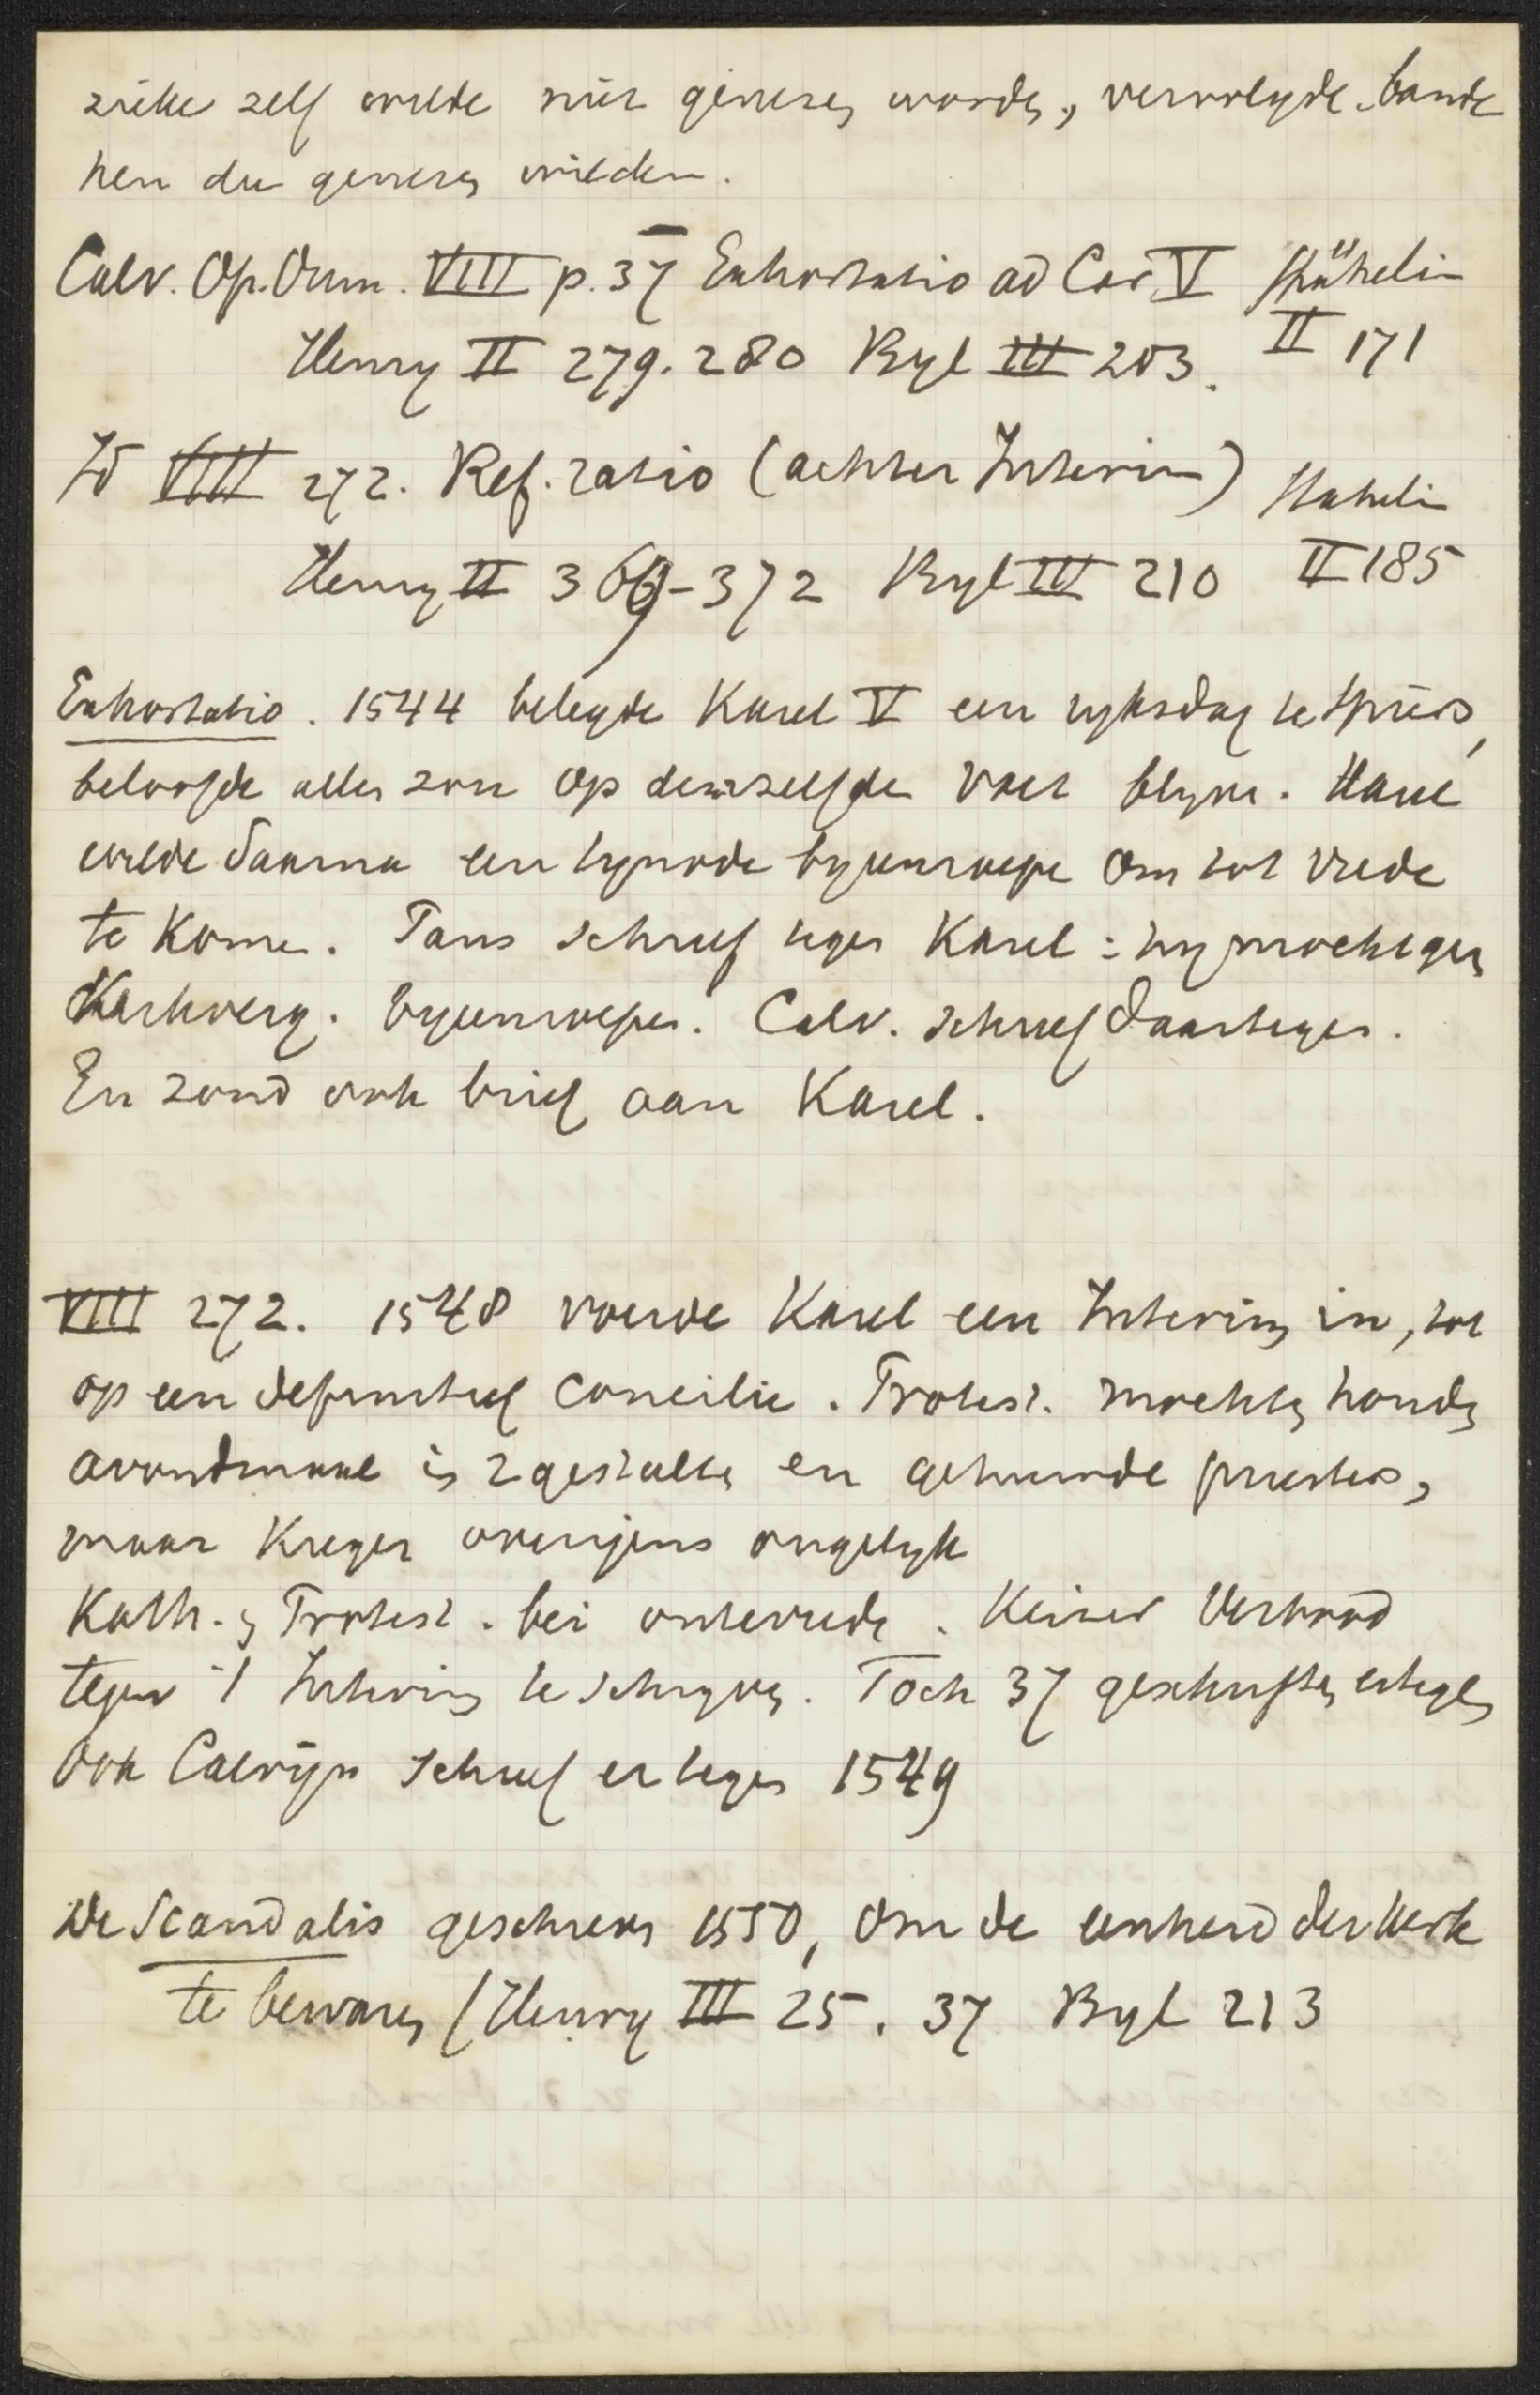 zieke zelf wilde niet genezen worden, vervolgde bande
hen die genezen wilden.
Calv. Op. Omn. VIII p. 37 Exhortatio ad Car V Stähelin
Henry II 279. 280 Byl III 203. II 171
Id VIII 272. Ref. ratio (achter Interim) Stahelin
Henry II 369-372 Byl III 210 II 185
Exhortatio. 1544 belegde Karel V een ryksdag te Spiers,
beloofde alles zou op denzelfden voet blyven. Karel
wilde daarna een synode byeenroepen om tot vrede
te komen. Paus schreef tegen Karel: hy mocht geen
Kerkverg. byeenroepen. Calv. schreef daartegen.
En zond ook brief aan Karel.
VIII 272. 1548 voerde Karel een Interim in, tot
op een definitief concilie. Protest. mochten houden
avondmaal in 2 gestalten en gehuwde priesters,
maar kregen overigens ongelyk
Kath. en Protest. bei ontevreden. Keizer verbood
tegen 't Interim te schryven. Toch 37 geschriften ertegen
Ook Calvijn schreef er tegen 1549
De Scandalis geschreven 1550, om de eenheid der kerk
te bewaren (Henry III 25. 37 Byl 213